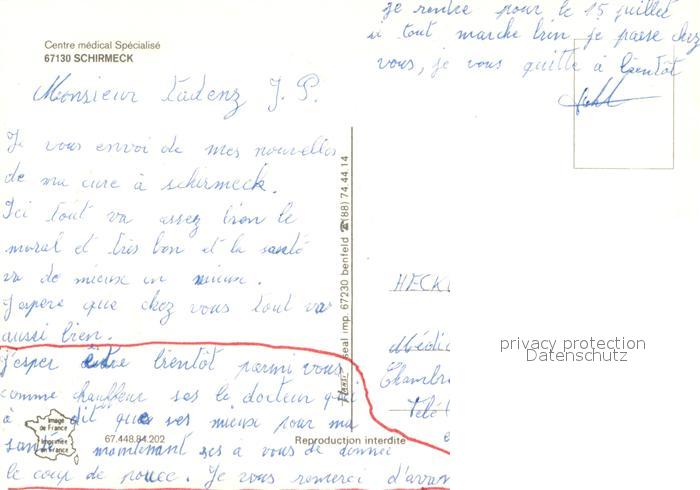 Centre médical Spécialisé
67130 SCHIRMECK
Monsieur Ladenz J. P.
Je vous envoi de mes nouvelles
de ma cure à schirmeck.
Ici tout va assez bien le
moral et très bon et la santé
va de mieux en mieux.
J'espere que chez vous tout va
aussi bien.
J'esper être bientôt parmi vous
comme chauffeur ses le docteur qui
à dit que ses mieux pour ma
santé maintenant ses à vous de donnée
le coup de pouce. Je vous remerci d'avan
Image de France
Imprimée en France
67.448.84.202
Reproduction interdite
seal imp. 67230 benfeld ☎ (88) 74.44.14
je rentre pour le 15 juillet
si tout marche bien je passe chez
vous, je vous quitte à bientôt
HECK
Médic
Chambre
Télé
privacy protection
Datenschutz